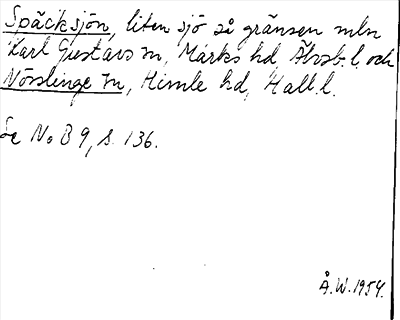 Späcksjön, liten sjö på gränsen mln
Karl Gustavs sn, Marks hd, Älvsb. l. och
Nösslinge sn, Himle hd, Hall. l.
Se No B 9, s. 136.
Å.W. 1954.